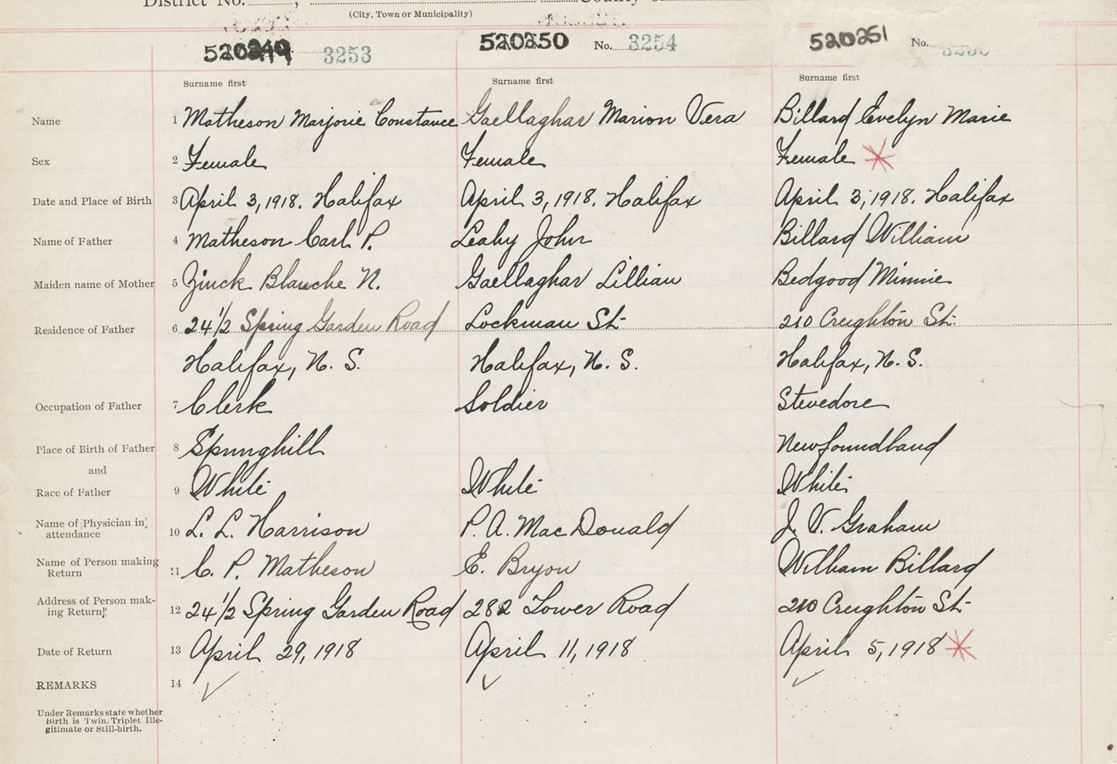 District No. , County
(City, Town or Municipality)
520249 3253 520250 No. 3254 520251 No.
Surname first Surname first Surname first
Name 1 Matheson Marjorie Constance Gaellaghar Marion Vera Billard Evelyn Marie
Sex 2 Female Female Female *
Date and Place of Birth 3 April 3, 1918. Halifax April 3, 1918. Halifax April 3, 1918. Halifax
Name of Father 4 Matheson Carl P. Leahy John Billard William
Maiden name of Mother 5 Zinck Blanche N. Gaellaghar Lillian Bedgood Minnie
Residence of Father 6 24½ Spring Garden Road Lockman St. 210 Creighton St.
Halifax, N. S. Halifax, N. S. Halifax, N. S.
Occupation of Father 7 Clerk Soldier Stevedore
Place of Birth of Father 8 Springhill Newfoundland
and
Race of Father 9 White White White
Name of Physician in attendance 10 L. L. Harrison P. A. MacDonald J. V. Graham
Name of Person making Return 11 C. P. Matheson E. Bryon William Billard
Address of Person making Return 12 24½ Spring Garden Road 282 Tower Road 210 Creighton St.
Date of Return 13 April 29, 1918 April 11, 1918 April 5, 1918 *
REMARKS 14 ✓ ✓ ✓
Under Remarks state whether
Birth is Twin, Triplet Ille-
gitimate or Still-birth.